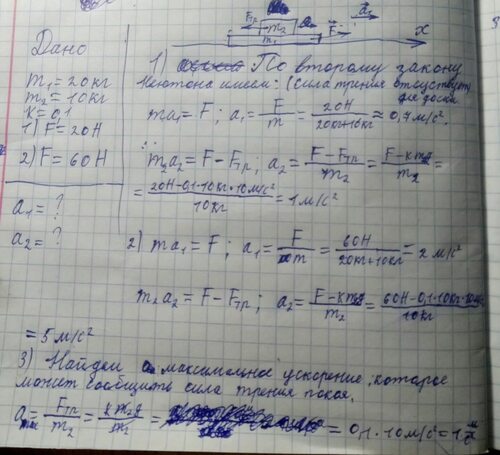 Дано
m₁=20кг
m₂=10кг
k=0,1
1) F=20Н
2) F=60Н
a₁=?
a₂=?
Fтр m₂ a₂ a₁
m₁ F x
1) По второму закону
Ньютона имеем: (сила трения отсутствует
для доски
ma₁=F; a₁=F/m=20Н/20кг+10кг≈0,7м/с².
m₂a₂=F-Fтр; a₂=F-Fтр/m₂=F-km₂g/m₂=
=20Н-0,1·10кг·10м/с²/10кг=1м/с²
2) ma₁=F; a₁=F/m=60Н/20кг+10кг=2м/с²
m₂a₂=F-Fтр; a₂=F-km₂g/m₂=60Н-0,1·10кг·10м/с²/10кг
=5м/с²
3) Найдем максимальное ускорение, которое
может сообщить сила трения покоя.
a max=Fтр/m₂=km₂g/m₂= =0,1·10м/с²=1м/с²